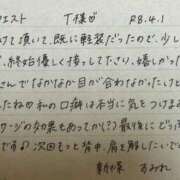 エスト T様 R8.4.1
けて頂いて、既に軽装だったので、少し
、終始優しく接して下さり、嬉しかっ
さんでなかなか目が合わなかったけれ
たね 私の口癖は本当に気をつけます
サージの効果もあってか?)最後にどっ
です 次回もっと背中、肩を解したいで
新保 すみれ